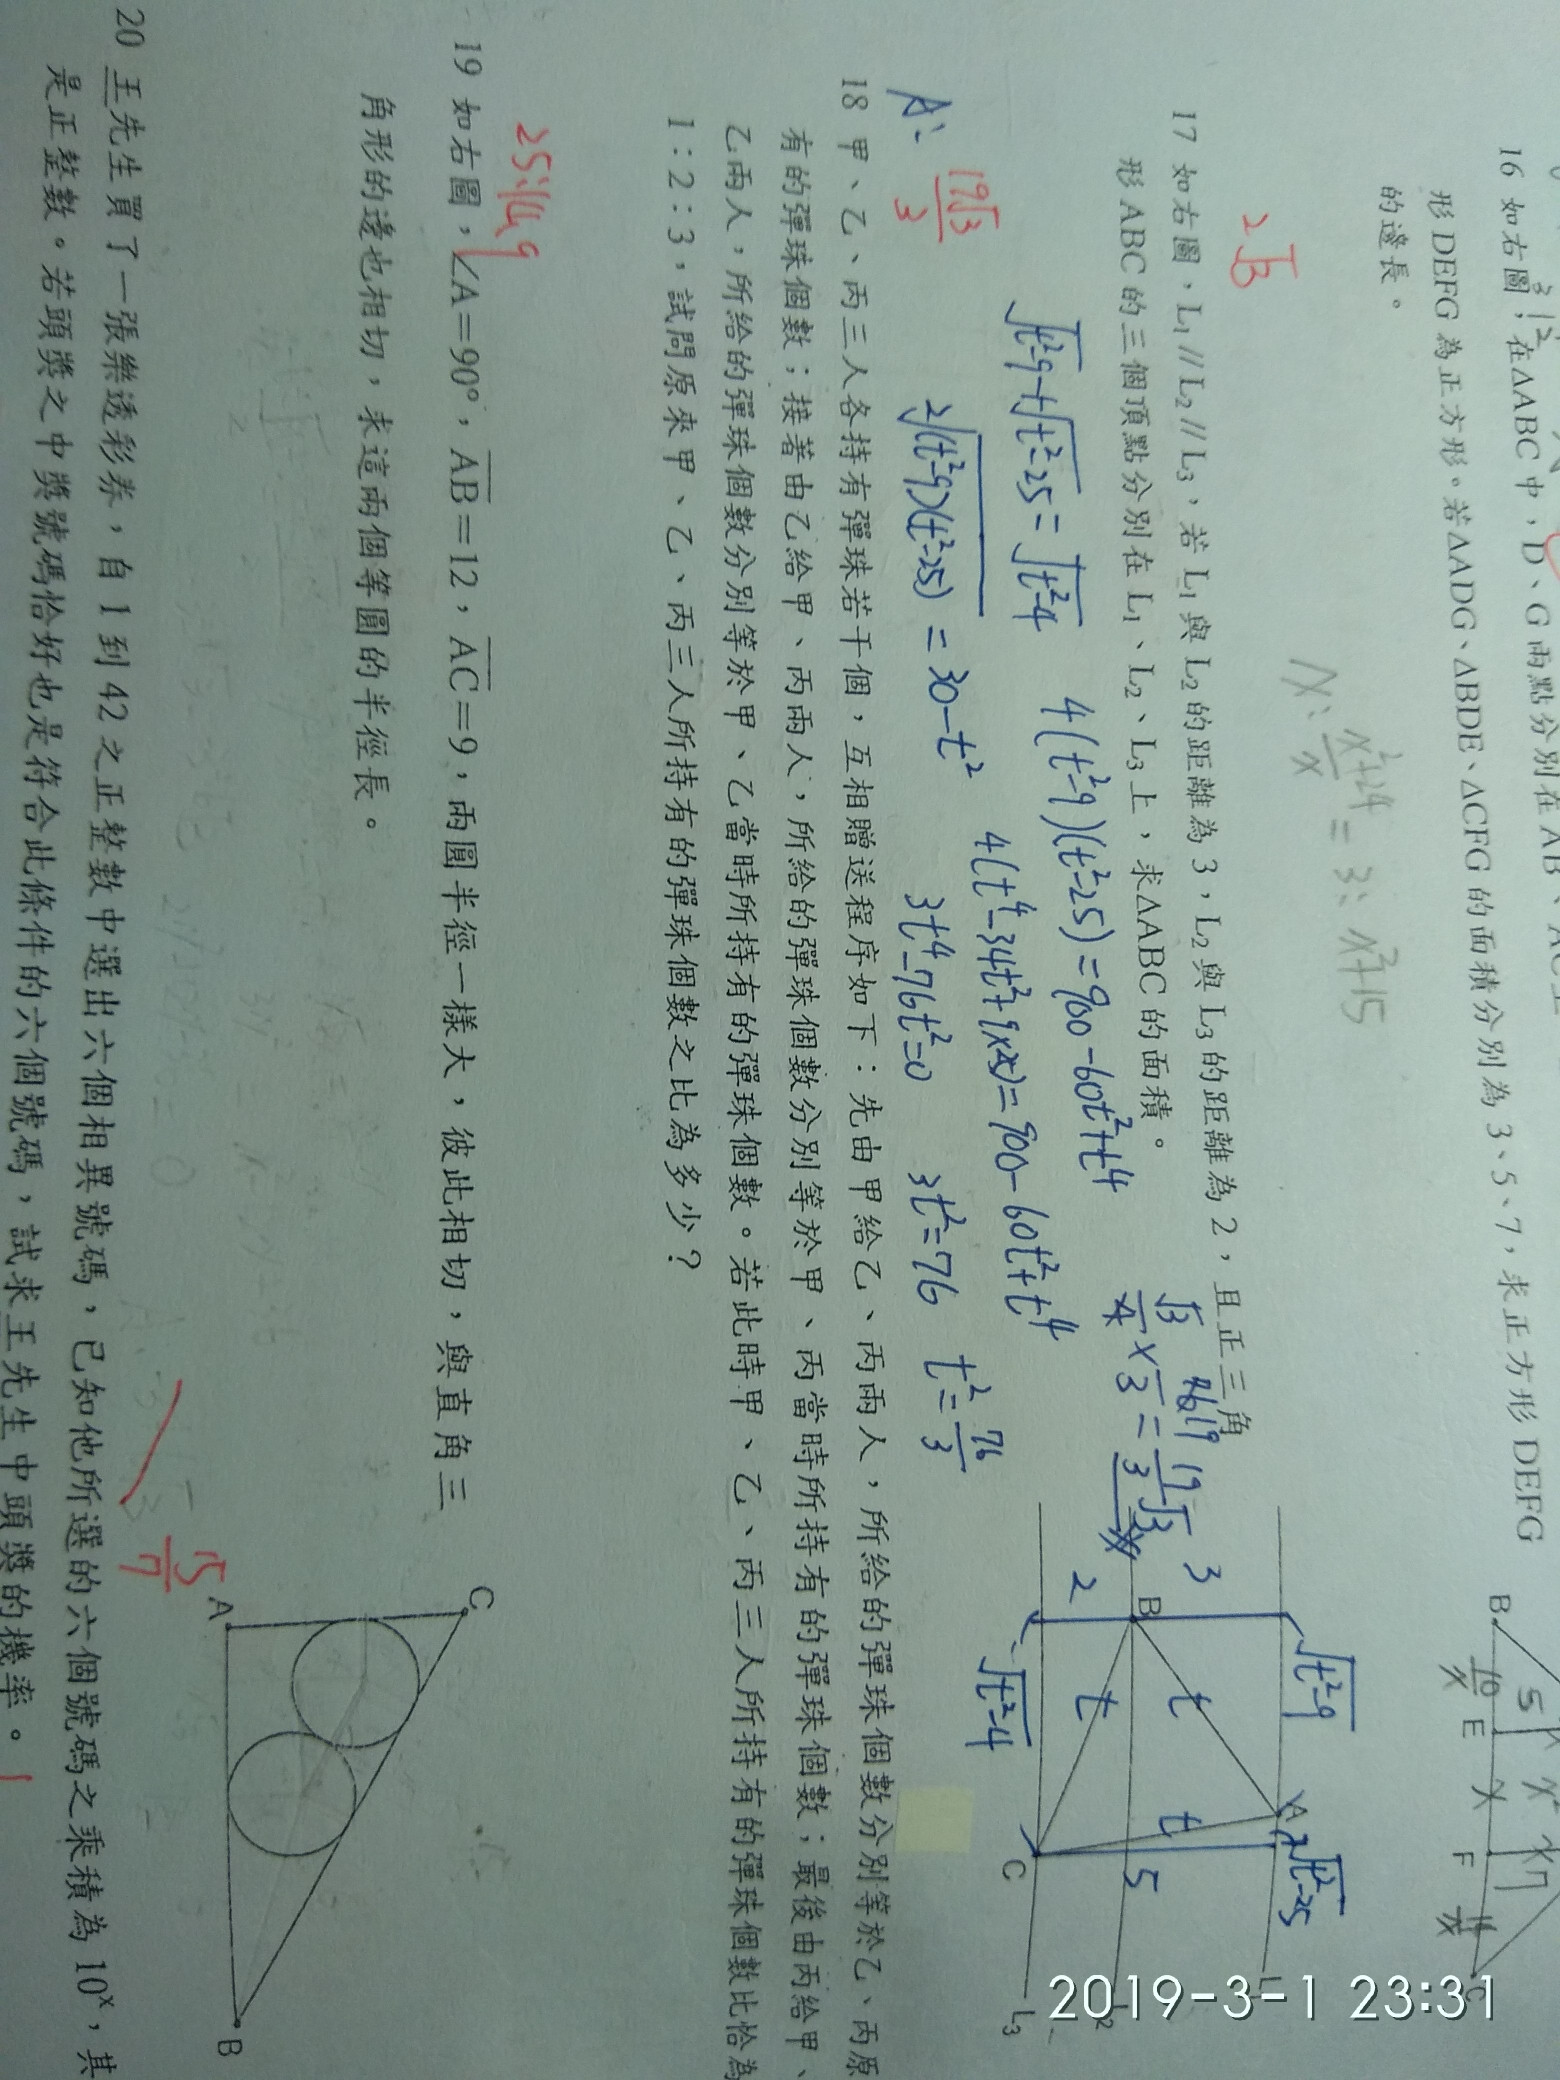 16 如右圖，在△ABC中，D、G兩點分別在AB、AC上
形DEFG為正方形。若△ADG、△BDE、△CFG的面積分別為3、5、7，求正方形DEFG
的邊長。
2√3
x : (x²+24)/x = 3 : x²+15
B
10/x
E
x
F
14/x
C
5
x²
7
17 如右圖，L₁//L₂//L₃，若L₁與L₂的距離為3，L₂與L₃的距離為2，且正三角
形ABC的三個頂點分別在L₁、L₂、L₃上，求△ABC的面積。
A:
19√3/3
√t²-9 - √t²-25 = √t²-4
2√(t²-9)(t²-25) = 30-t²
4(t²-9)(t²-25) = 900-60t²+t⁴
4(t⁴-34t²+9×25) = 900-60t²+t⁴
3t⁴-76t²=0
3t²=76
t²=76/3
√3/4 × 76/3 = 19√3/3
3
2
B
t
t
t
√t²-9
√t²-4
√t²-25
A
5
C
L₁
L₂
L₃
18 甲、乙、丙三人各持有彈珠若干個，互相贈送程序如下：先由甲給乙、丙兩人，所給的彈珠個數分別等於乙、丙原
有的彈珠個數；接著由乙給甲、丙兩人，所給的彈珠個數分別等於甲、丙當時所持有的彈珠個數；最後由丙給甲、
乙兩人，所給的彈珠個數分別等於甲、乙當時所持有的彈珠個數。若此時甲、乙、丙三人所持有的彈珠個數比恰為
1：2：3，試問原來甲、乙、丙三人所持有的彈珠個數之比為多少？
25:14:9
19 如右圖，∠A＝90°，AB＝12，AC＝9，兩圓半徑一樣大，彼此相切，與直角三
角形的邊也相切，求這兩個等圓的半徑長。
15/7
C
A
B
20 王先生買了一張樂透彩券，自1到42之正整數中選出六個相異號碼，已知他所選的六個號碼之乘積為10ˣ，其
是正整數。若頭獎之中獎號碼恰好也是符合此條件的六個號碼，試求王先生中頭獎的機率。
2019-3-1 23:31